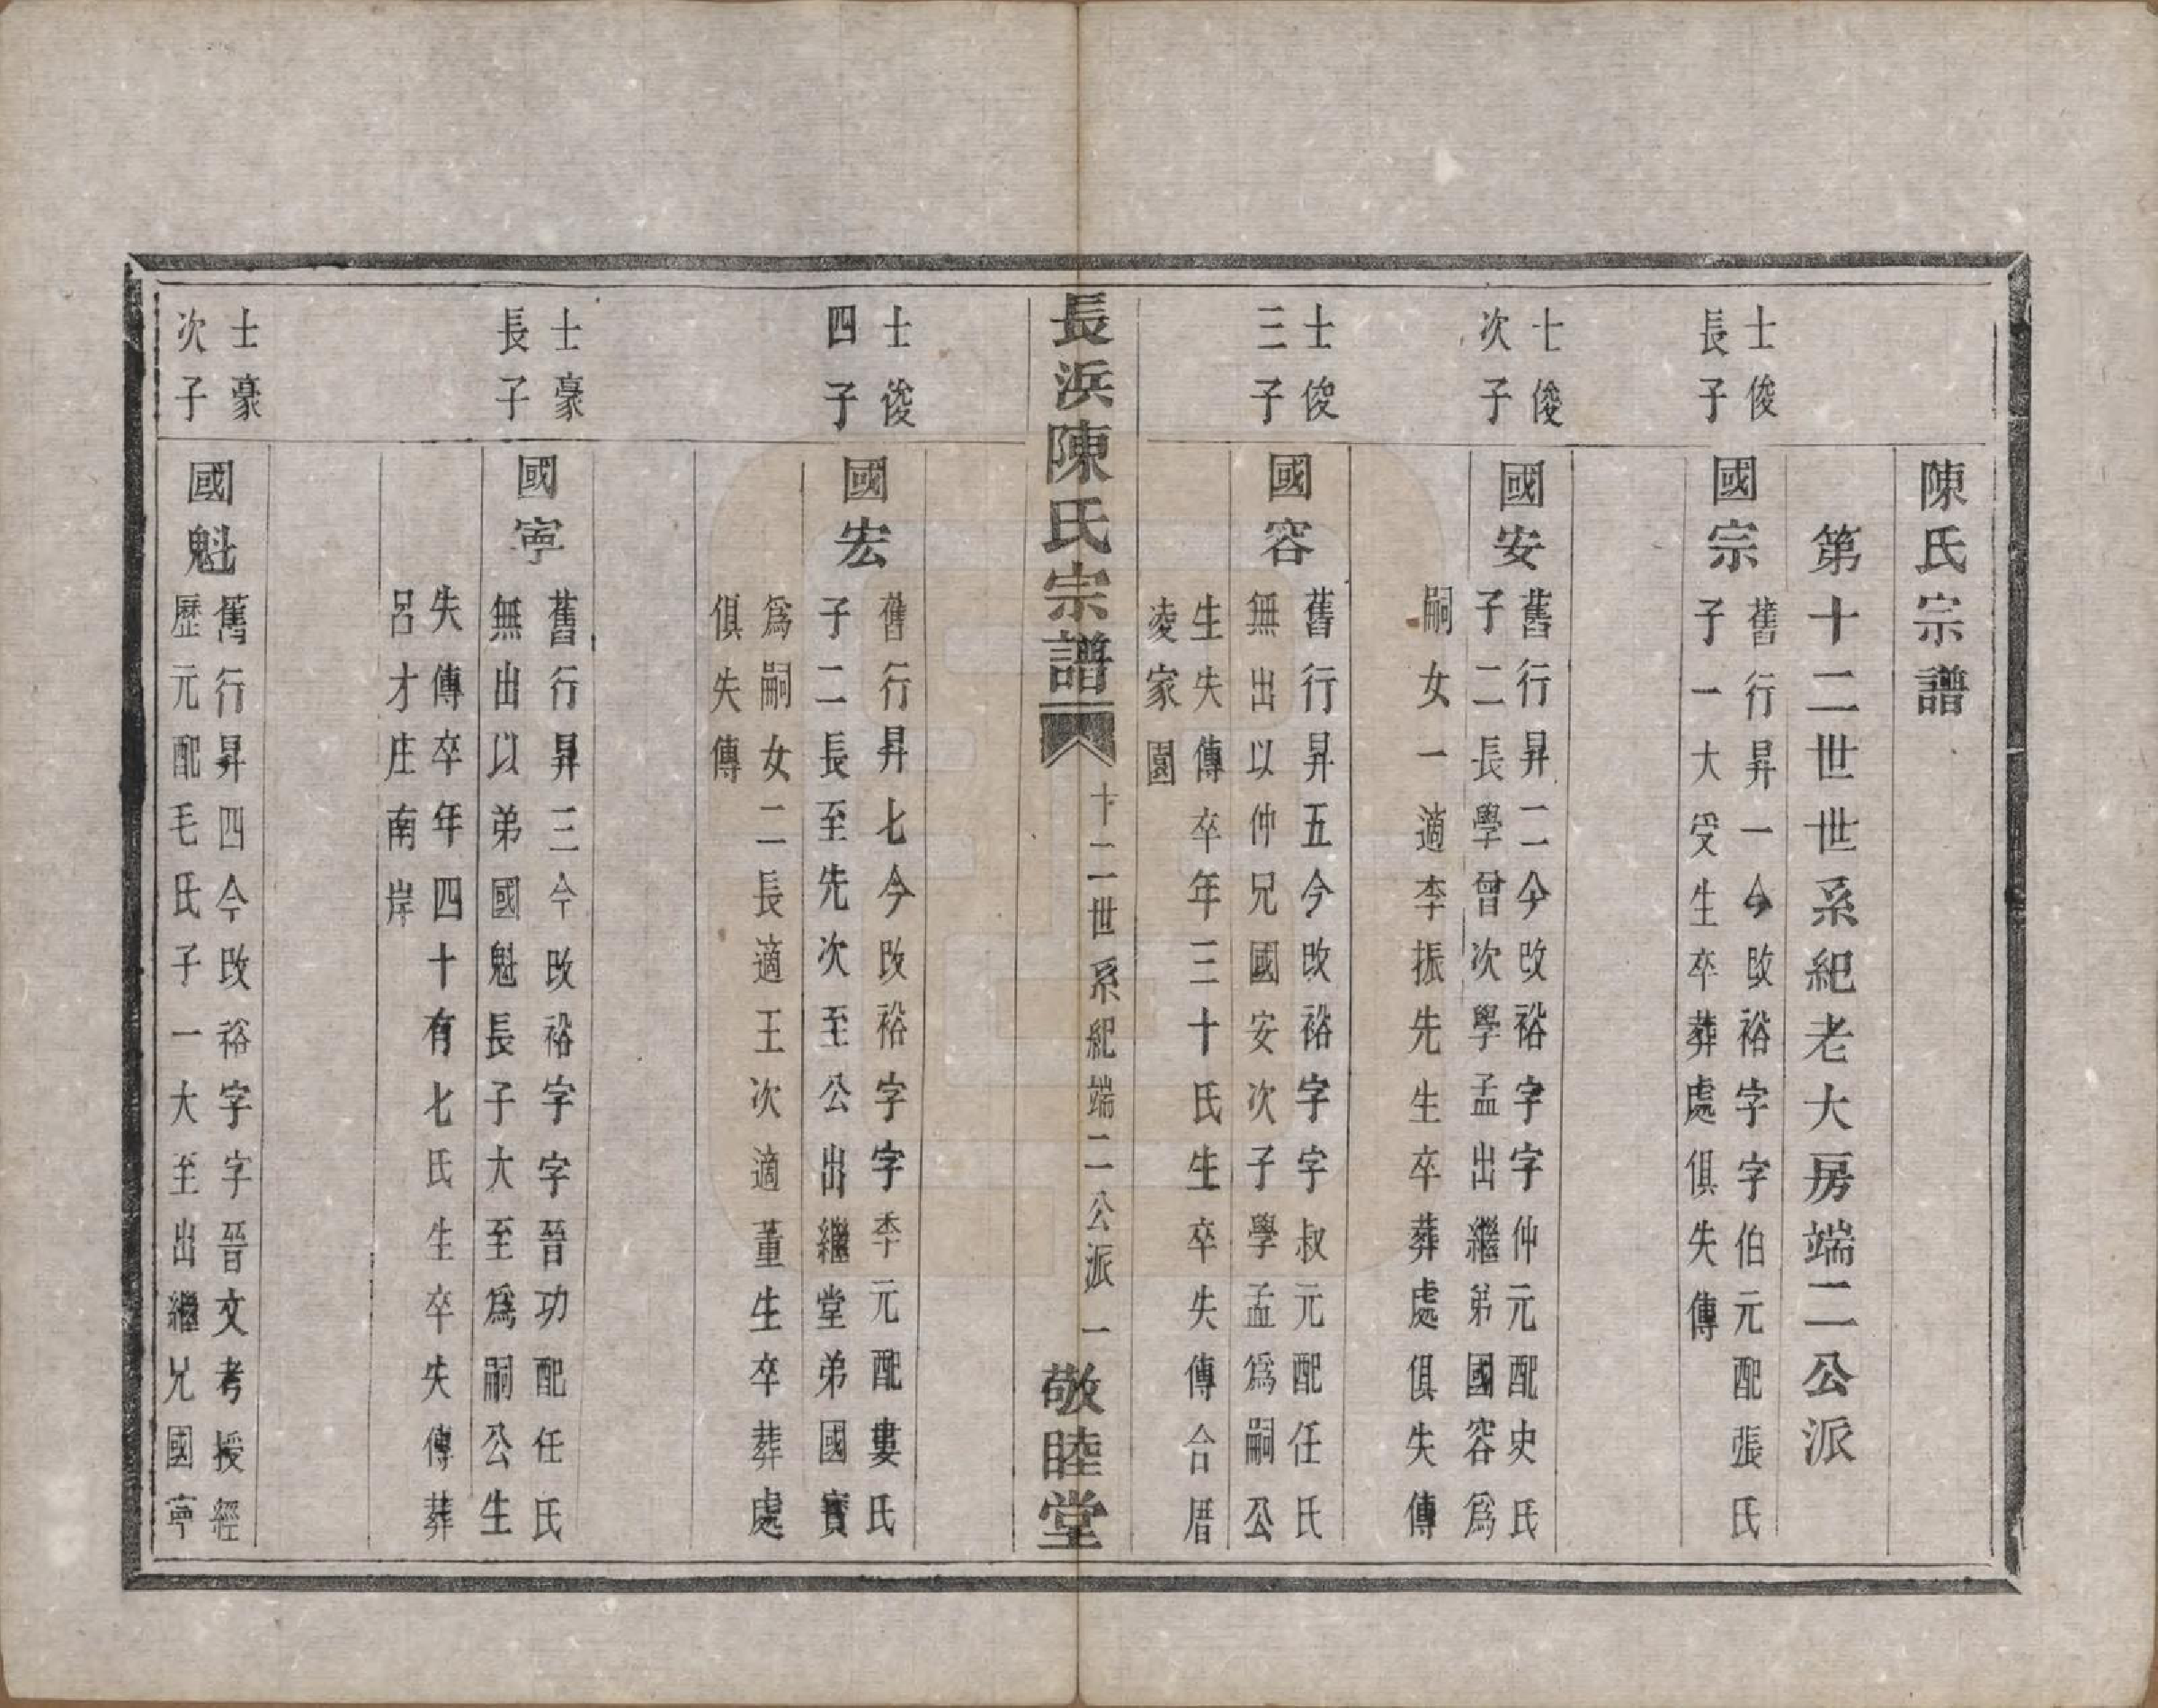 陳氏宗譜
第十二世世系紀老大房端二公派
士俊
長子
國宗
舊行昇一今改裕字字伯元配張氏
子一大受生卒葬處俱失傳
士俊
次子
國安
舊行昇二今改裕字字仲元配史氏
子二長學曾次學孟出繼弟國容爲
嗣女一適李振先生卒葬處俱失傳
士俊
三子
國容
舊行昇五今改裕字字叔元配任氏
無出以仲兄國安次子學孟爲嗣公
生失傳卒年三十氏生卒失傳合厝
凌家園
長浜陳氏宗譜
十二世系紀端二公派
一
敬睦堂
士俊
四子
國宏
舊行昇七今改裕字字季元配婁氏
子二長至先次至公出繼堂弟國寶
爲嗣女二長適王次適董生卒葬處
俱失傳
士豪
長子
國寧
舊行昇三今改裕字字晉功配任氏
無出以弟國魁長子大至爲嗣公生
失傳卒年四十有七氏生卒失傳葬
呂才庄南岸
士豪
次子
國魁
舊行昇四今改裕字字晉文考授經
歷元配毛氏子一大至出繼兄國寧